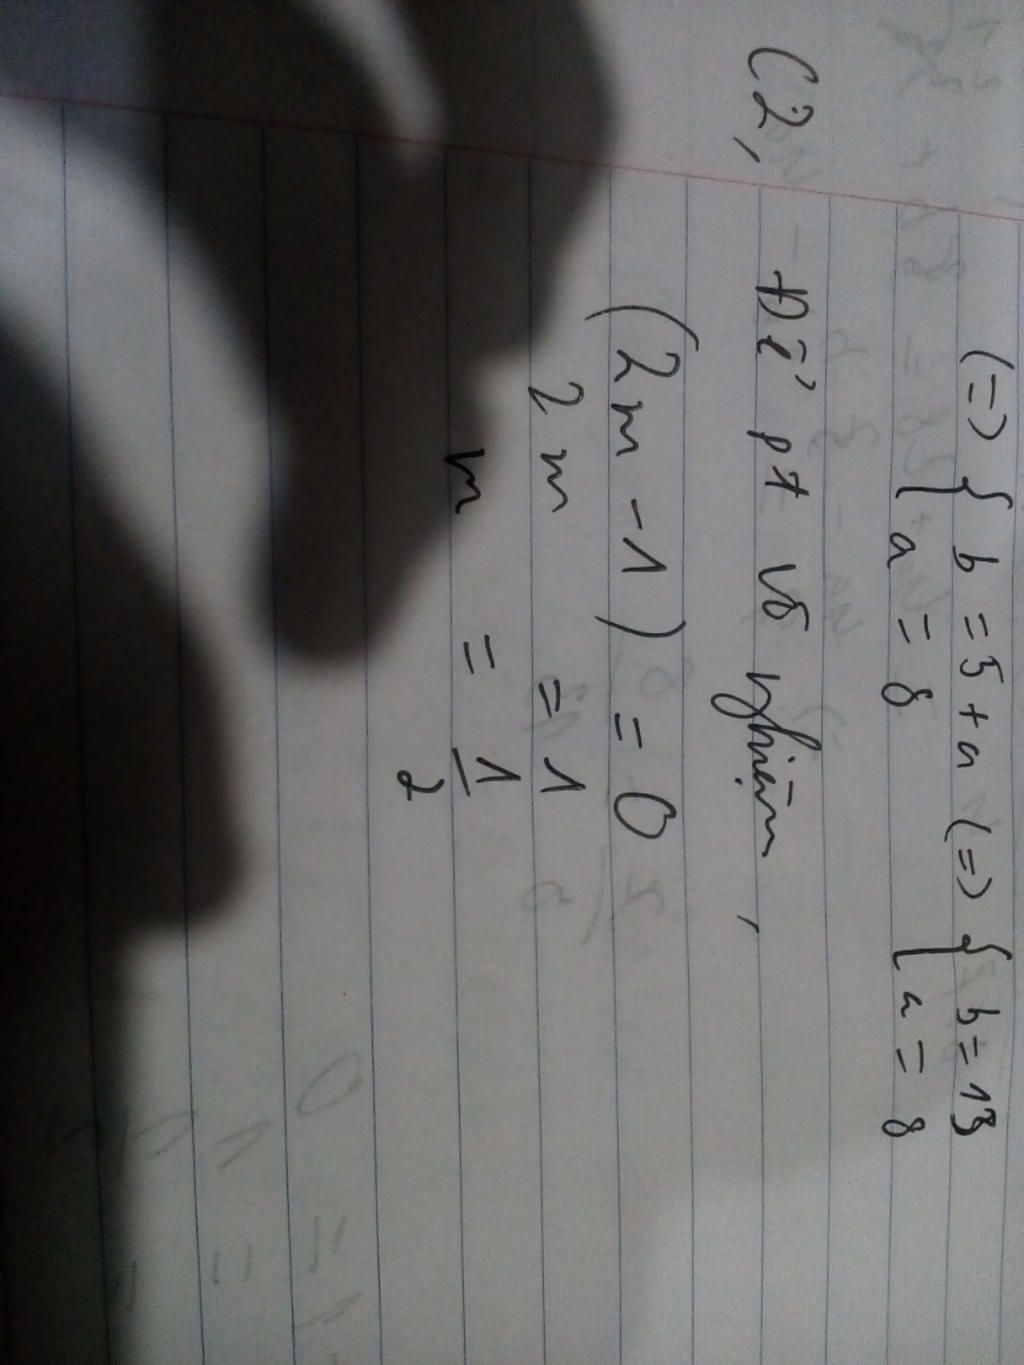 (=) { b = 5 + a (=) { b = 13
{ a = 8 { a = 8
C2, Để pt vô nghiệm,
(2m - 1) = 0
2m = 1
m = 1/2